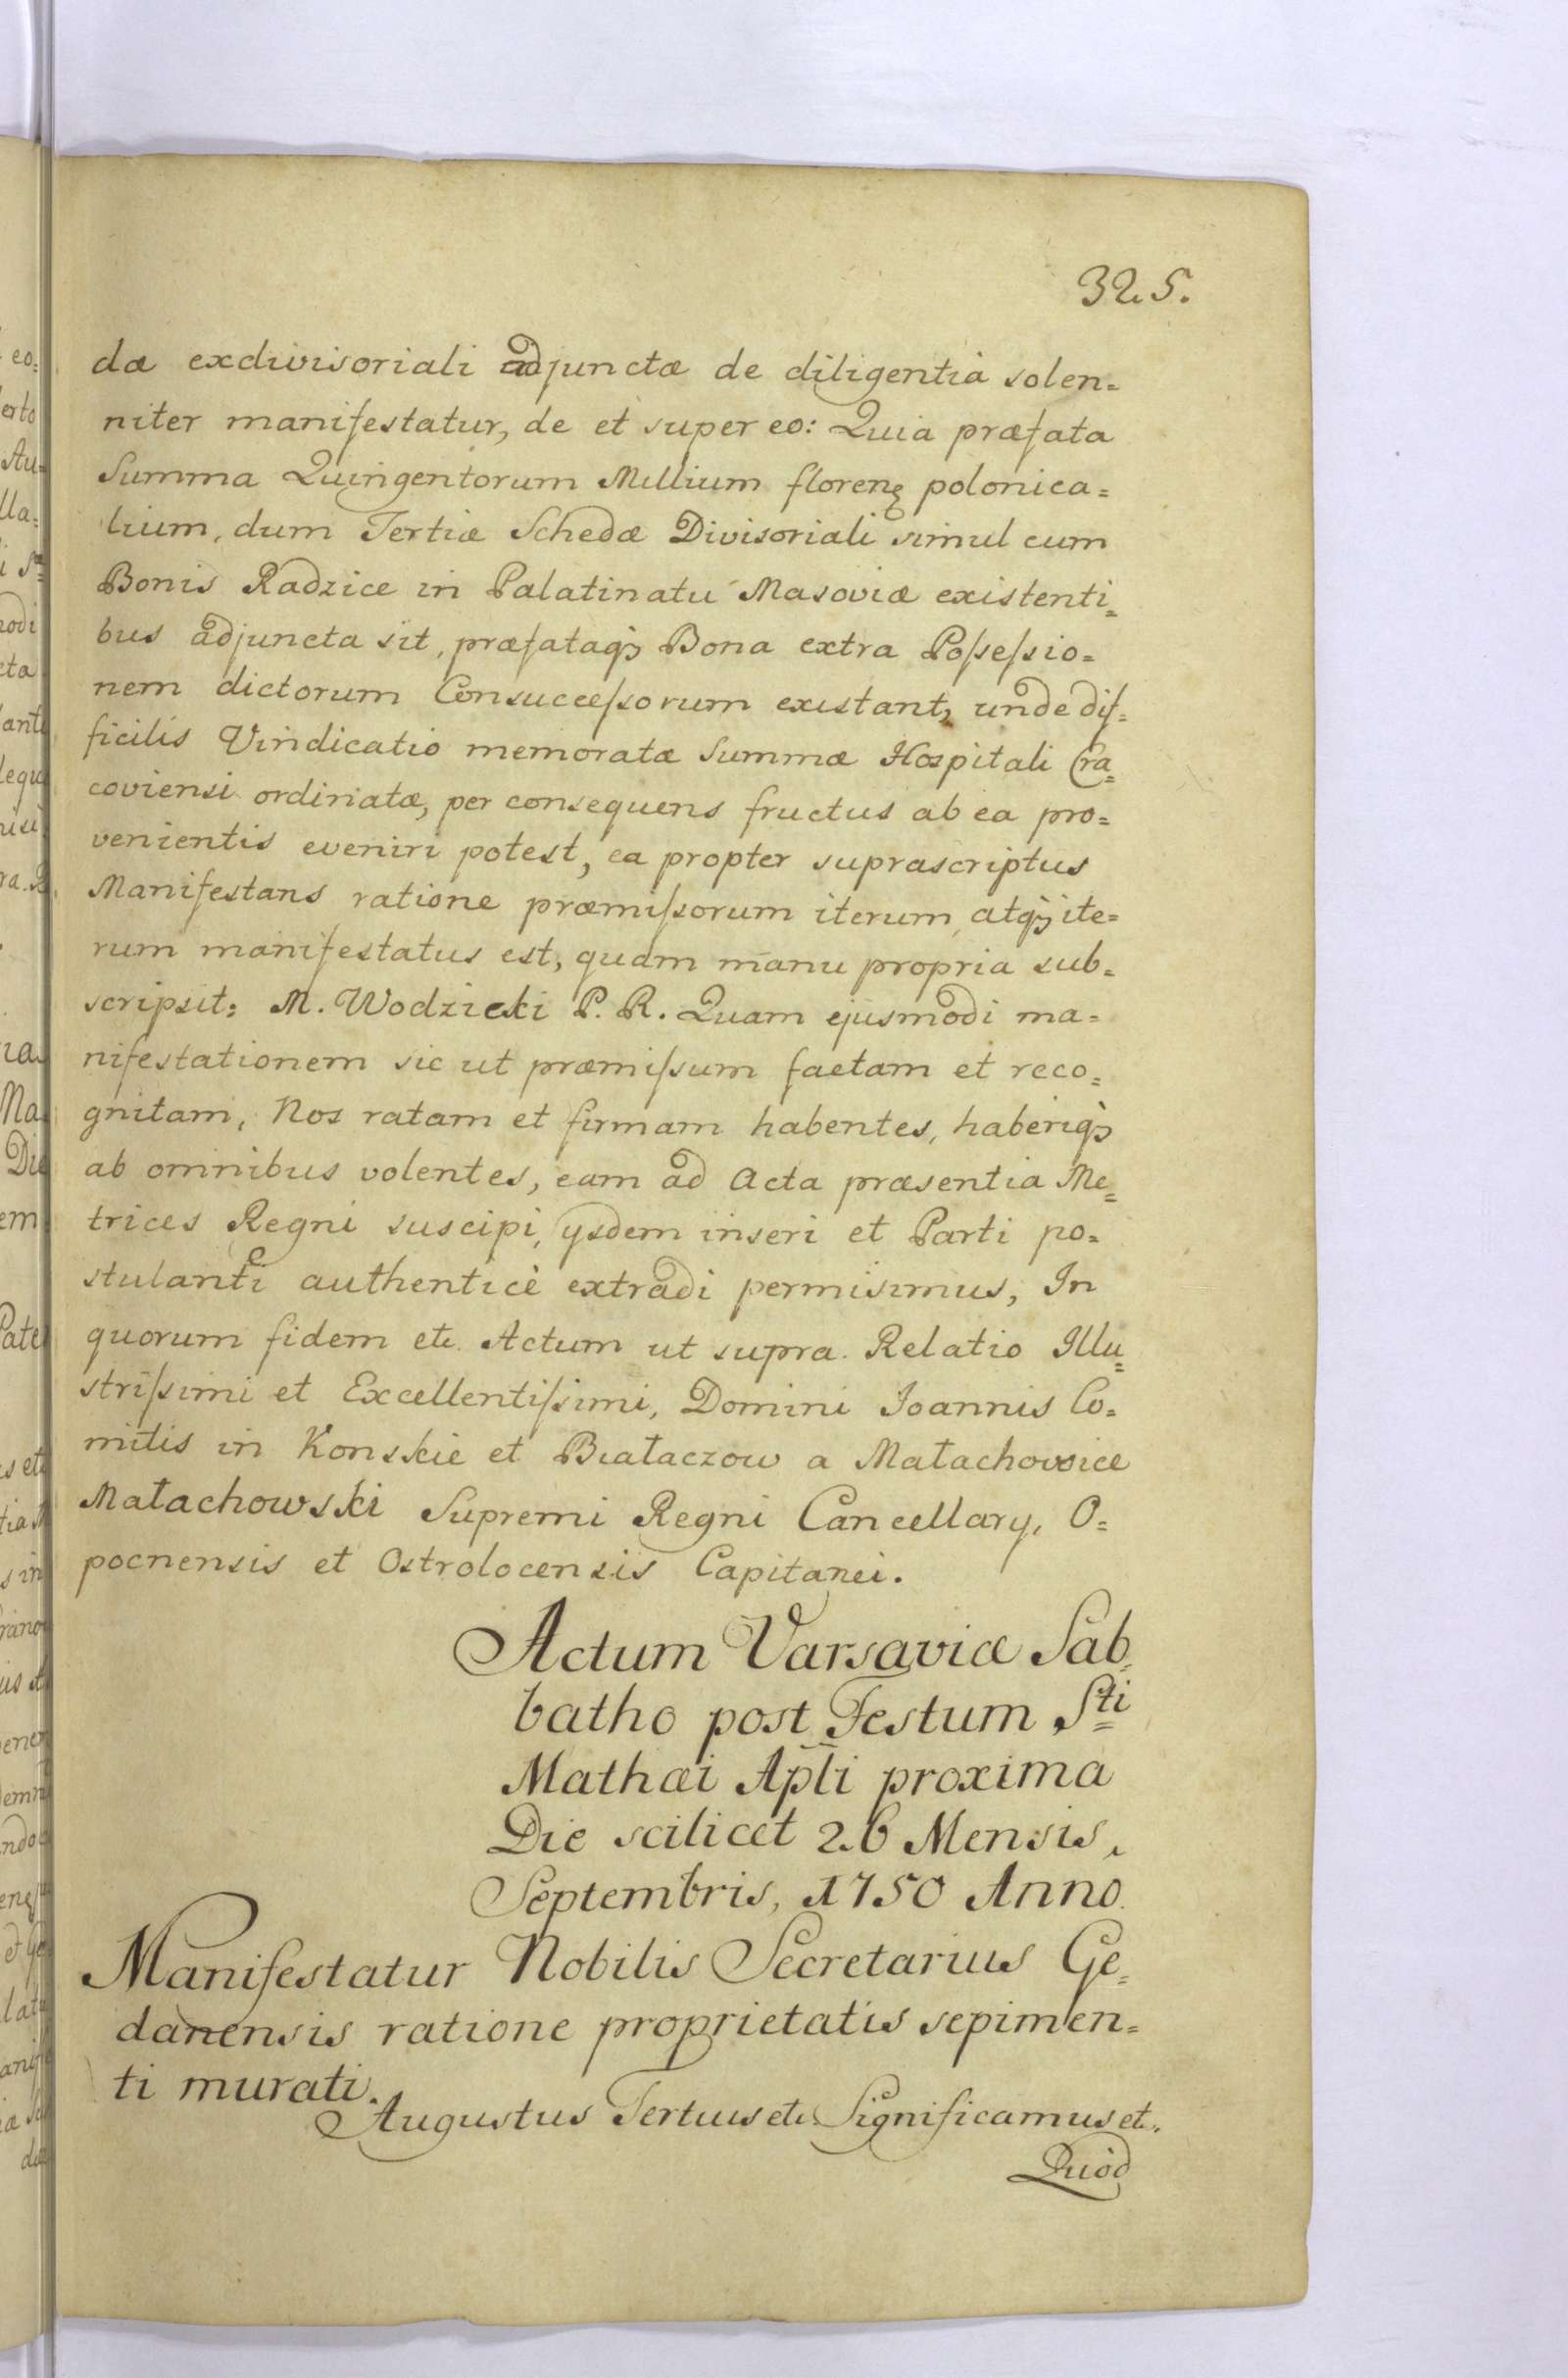 325.
dæ exdivisoriali adjunctæ de diligentia solen=
niter manifestatur, de et super eo: Quia præfata
Summa Quingentorum Millium florenꝫ polonica=
lium, dum Tertiæ Schedæ Divisoriali simul cum
Bonis Radzice in Palatinatu Masoviæ existenti=
bus adjuncta sit, præfataqꝫ Bona extra Poſseſsio=
nem dictorum Consucceſsorum existant, unde dif=
ficilis Vindicatio memoratæ Summæ Hospitali Cra=
coviensi ordinatæ, per consequens fructus ab ea pro=
venientis eveniri potest, ea propter suprascriptus
Manifestans ratione præmiſsorum iterum, atqꝫ ite=
rum manifestatus est, quam manu propria sub=
scripsit: M. Wodzicki P. R. Quam ejusmodi ma=
nifestationem sic ut præmiſsum factam et reco=
gnitam, Nos ratam et firmam habentes, haberiqꝫ
ab omnibus volentes, eam ad Acta præsentia Me=
trices Regni suscipi, ijsdem inseri et Parti po=
stulanti authenticè extradi permisimus, In
quorum fidem etc. Actum ut supra. Relatio Illu=
striſsimi et Excellentiſsimi, Domini Joannis Co=
mitis in Konskie et Białaczow a Małachowice
Małachowski Supremi Regni Cancellarij, O=
pocnensis et Ostrolocensis Capitanei.
Actum Varsaviæ Sab=
batho post Festum Sti
Mathæi Apli proxima
Die scilicet 26 Mensis,
Septembris, 1750 Anno.
Manifestatur Nobilis Secretarius Ge=
danensis ratione proprietatis sepimen=
ti murati.
Augustus Tertius etc. Significamus etc.
Quod